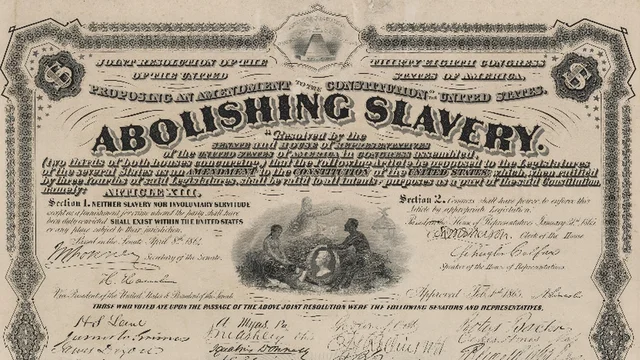 JOINT RESOLUTION OF THE THIRTY EIGHTH CONGRESS
OF THE UNITED STATES OF AMERICA,
PROPOSING AN AMENDMENT TO THE CONSTITUTION OF THE UNITED STATES,
ABOLISHING SLAVERY.
Resolved by the
SENATE and HOUSE of REPRESENTATIVES
of the UNITED STATES of AMERICA in CONGRESS assembled,
(two thirds of both houses concurring) that the following article is proposed to the Legislatures
of the several States as an AMENDMENT to the CONSTITUTION of the UNITED STATES which, when ratified
by three fourths of said Legislatures shall be valid to all intents and purposes as a part of the said Constitution
namely:
ARTICLE XIII.
Section 1. NEITHER SLAVERY NOR INVOLUNTARY SERVITUDE
except as a punishment for crime whereof the party shall have
been duly convicted SHALL EXIST WITHIN THE UNITED STATES
or any place subject to their jurisdiction.
Passed in the Senate April 8th 1864.
Secretary of the Senate.
H. Hamlin
Vice President of the United States & President of the Senate.
Section 2. Congress shall have power to enforce this
Article by appropriate Legislation.
House of Representatives January 31st 1865
Clerk of the House
Schuyler Colfax
Speaker of the House of Representatives.
Approved Feb. 1st 1865. A. Lincoln
THOSE WHO VOTED AYE UPON THE PASSAGE OF THE ABOVE JOINT RESOLUTION WERE THE FOLLOWING SENATORS AND REPRESENTATIVES,
H S Lane
James W. Grimes
Ignatius Donnelly